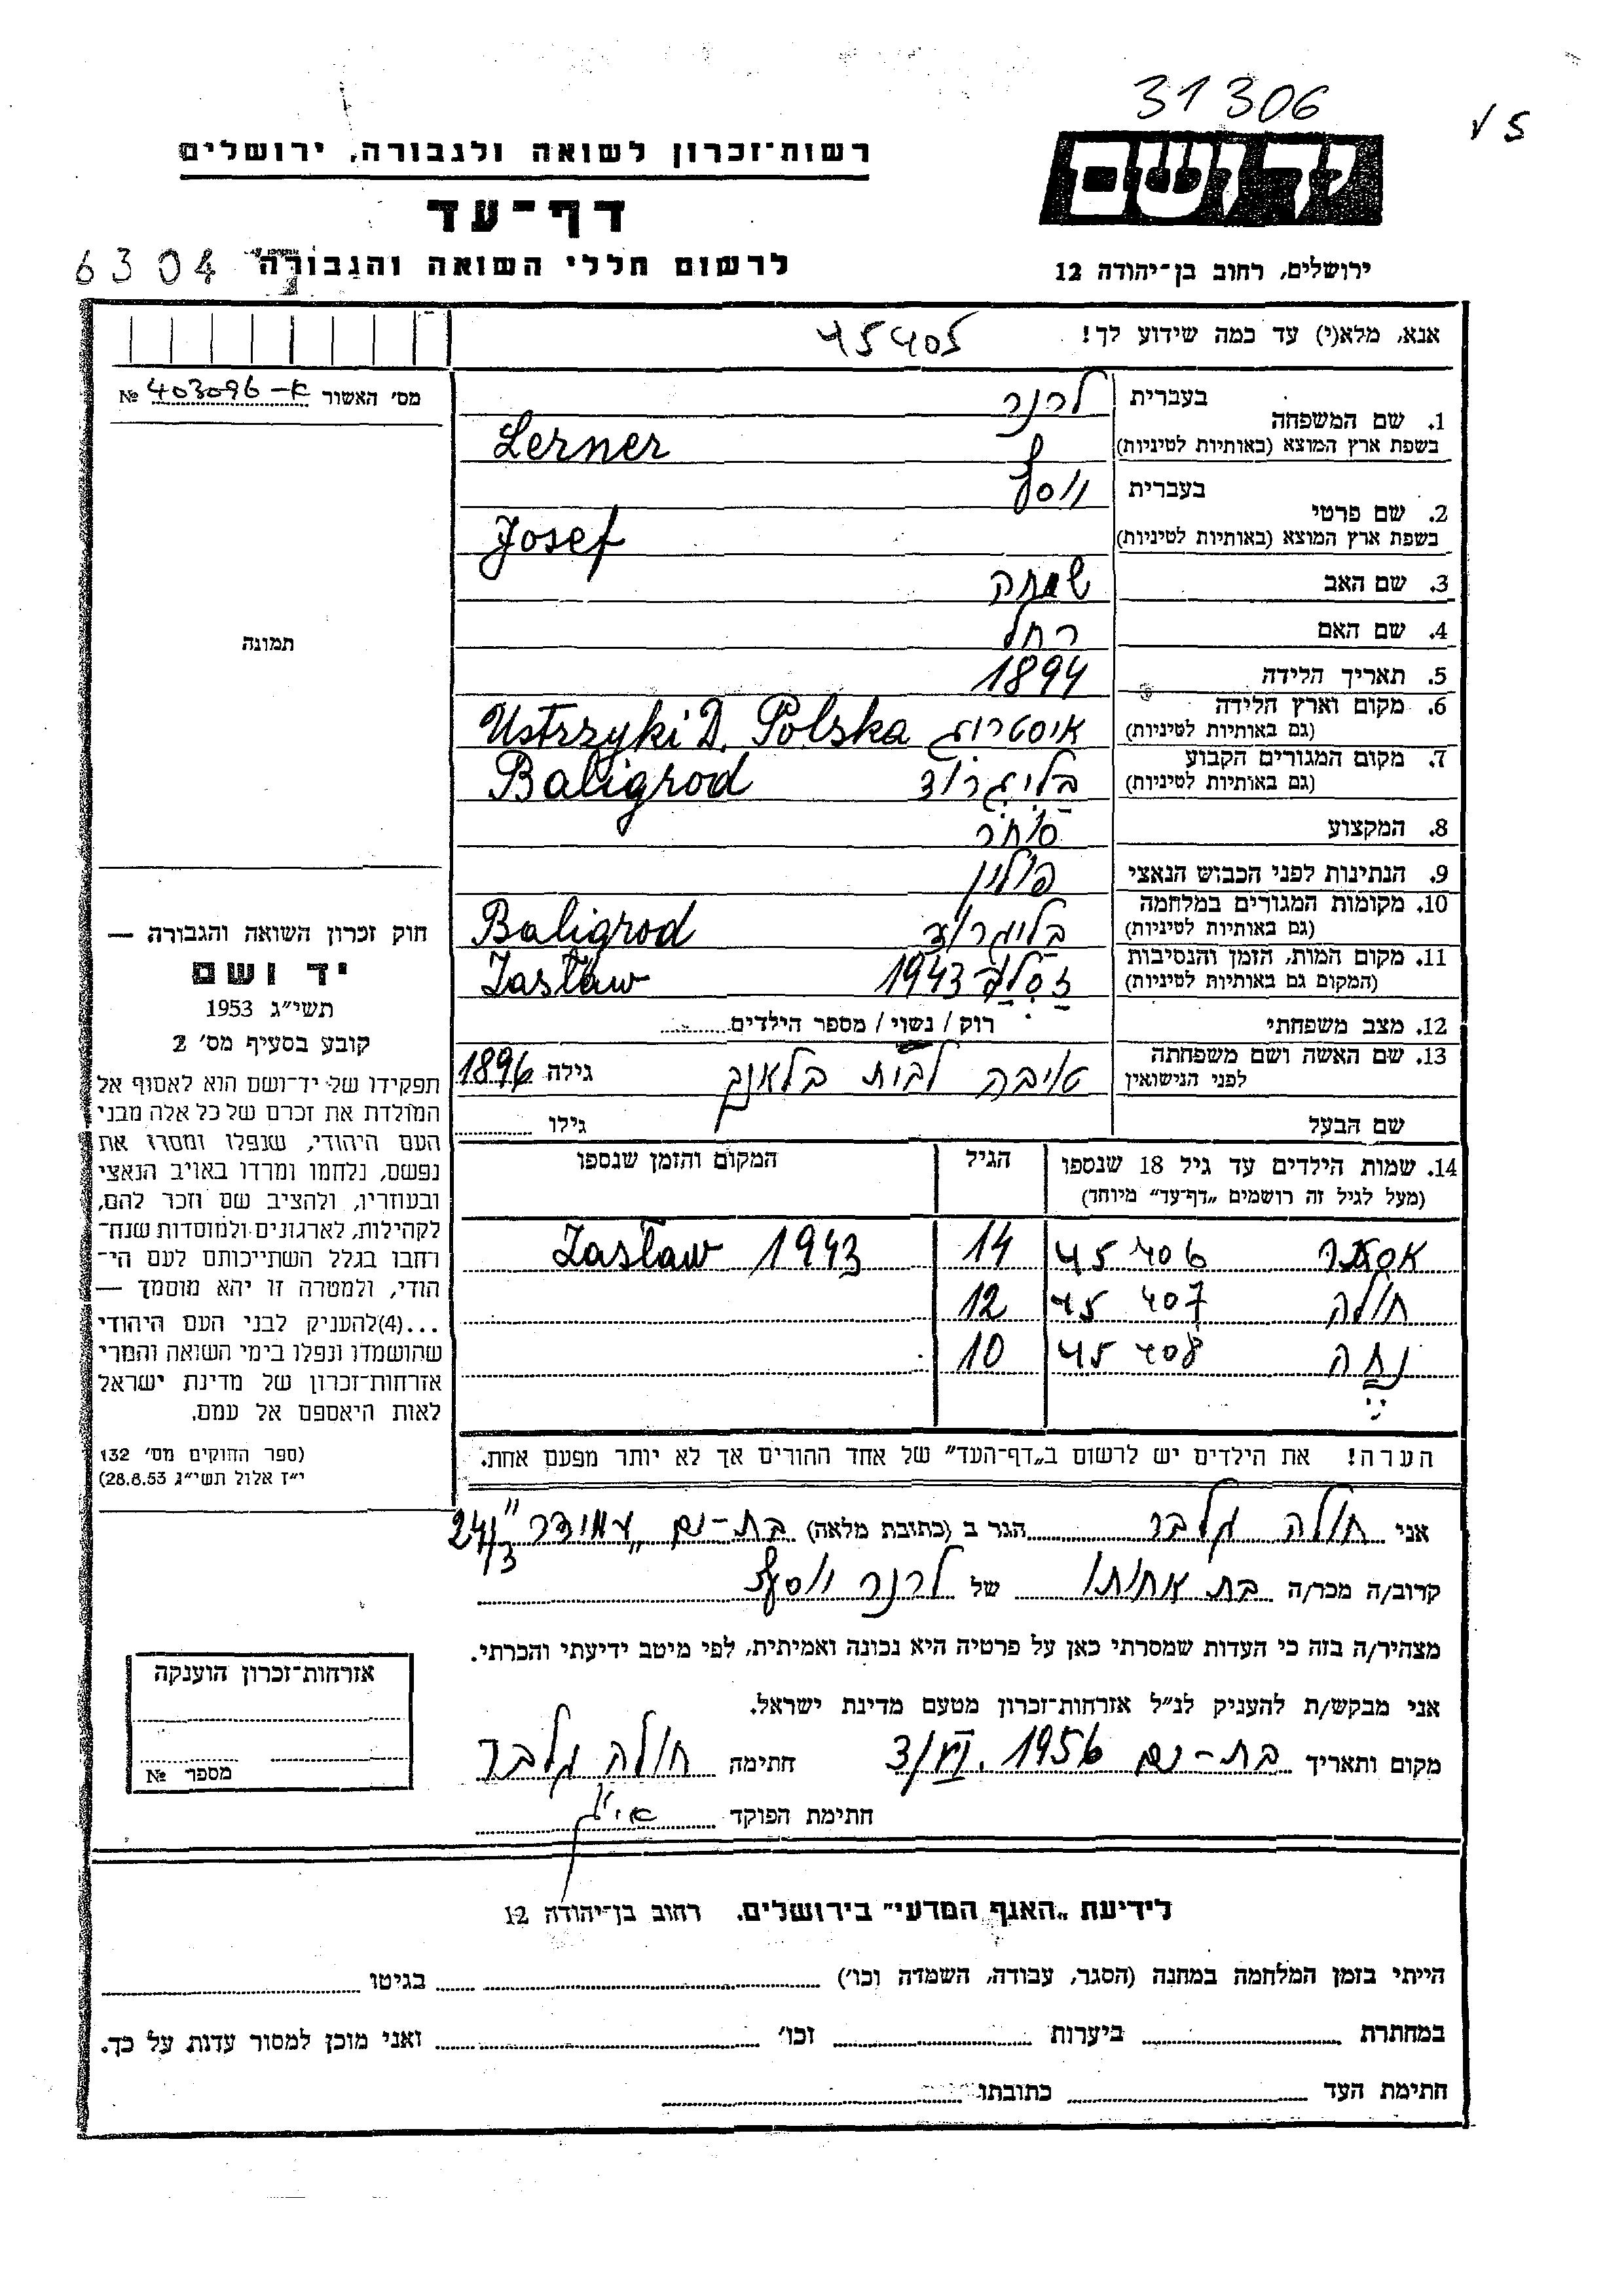 31306
V 5
יד ושם
רשות־זכרון לשואה ולגבורה, ירושלים
דף־עד
לרשום חללי השואה והגבורה
6304
ירושלים, רחוב בן־יהודה 12
אנא, מלא(י) עד כמה שידוע לך!
45405
מס׳ האשור א-403096 №
1. שם המשפחה
בעברית
לרנר
בשפת ארץ המוצא (באותיות לטיניות)
Lerner
2. שם פרטי
בעברית
יוסף
בשפת ארץ המוצא (באותיות לטיניות)
Josef
3. שם האב
שמחה
4. שם האם
רחל
5. תאריך הלידה
1894
6. מקום וארץ הלידה
(גם באותיות לטיניות)
Ustrzyki D. Polska
7. מקום המגורים הקבוע
(גם באותיות לטיניות)
בליגרוד Baligrod
8. המקצוע
סוחר
9. הנתינות לפני הכבוש הנאצי
פולין
10. מקומות המגורים במלחמה
(גם באותיות לטיניות)
בליגרוד Baligrod
11. מקום המות, הזמן והנסיבות
(המקום גם באותיות לטיניות)
זסלב 1943 Zasław
12. מצב משפחתי
רוק / נשוי / מספר הילדים
13. שם האשה ושם משפחתה
לפני הנישואין
טויבה לבית בלאנק גילה 1896
שם הבעל
גילו
תמונה
חוק זכרון השואה והגבורה —
יד ושם
תשי״ג 1953
קובע בסעיף מס׳ 2
תפקידו של יד־ושם הוא לאסוף אל
המולדת את זכרם של כל אלה מבני
העם היהודי, שנפלו ומסרו את
נפשם, נלחמו ומרדו באויב הנאצי
ובעוזריו, ולהציב שם וזכר להם,
לקהילות, לארגונים ולמוסדות שנח־
רבו בגלל השתייכותם לעם הי־
הודי, ולמטרה זו יהא מוסמך —
...(4)להעניק לבני העם היהודי
שהושמדו ונפלו בימי השואה והמרי
אזרחות־זכרון של מדינת ישראל
לאות היאספם אל עמם.
(ספר החוקים מס׳ 132
י״ז אלול תשי״ג 28.8.53)
14. שמות הילדים עד גיל 18 שנספו
(מעל לגיל זה רושמים „דף־עד״ מיוחד)
הגיל
המקום והזמן שנספו
אסתר 45406 14 Zasław 1943
חולה 45407 12
נחה 45408 10
הערה! את הילדים יש לרשום ב„דף־העד״ של אחד ההורים אך לא יותר מפעם אחת.
אני חולה גלבר הגר ב (כתובת מלאה) בת-ים „עמידר״ 241/3
קרוב/ה מכר/ה בת אחותו של לרנר יוסף
מצהיר/ה בזה כי העדות שמסרתי כאן על פרטיה היא נכונה ואמיתית, לפי מיטב ידיעתי והכרתי.
אני מבקש/ת להעניק לנ״ל אזרחות־זכרון מטעם מדינת ישראל.
מקום ותאריך בת-ים 1956 חתימה חולה גלבר
חתימת הפוקד
אזרחות־זכרון הוענקה
מספר №
לידיעת „האגף המדעי״ בירושלים. רחוב בן־יהודה 12
הייתי בזמן המלחמה במחנה (הסגר, עבודה, השמדה וכו׳) בגיטו
במחתרת ביערות וכו׳ ואני מוכן למסור עדות על כך.
חתימת העד כתובתו